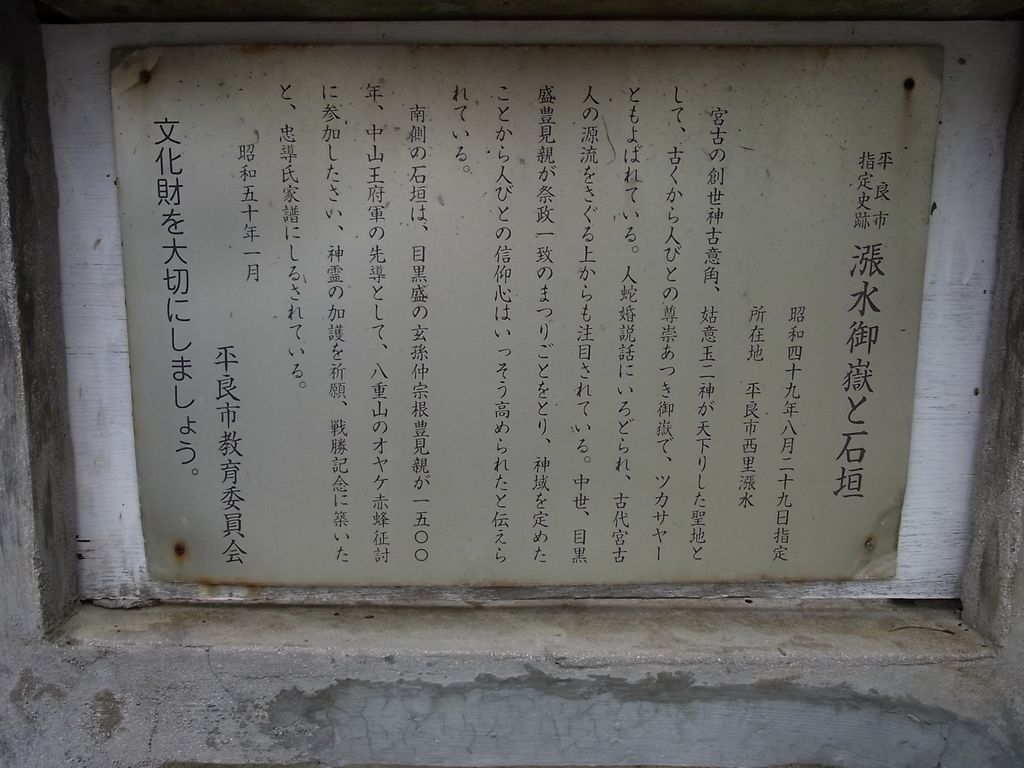 平良市
指定史跡
漲水御嶽と石垣
昭和四十九年八月二十九日指定
所在地 平良市西里漲水
宮古の創世神古意角、姑意玉二神が天下りした聖地と
して、古くから人びとの尊崇あつき御嶽で、ツカサヤー
ともよばれている。人蛇婚説話にいろどられ、古代宮古
人の源流をさぐる上からも注目されている。中世、目黒
盛豊見親が祭政一致のまつりごとをとり、神域を定めた
ことから人びとの信仰心はいっそう高められたと伝えら
れている。
南側の石垣は、目黒盛の玄孫仲宗根豊見親が一五〇〇
年、中山王府軍の先導として、八重山のオヤケ赤蜂征討
に参加したさい、神霊の加護を祈願、戦勝記念に築いた
と、忠導氏家譜にしるされている。
昭和五十年一月
平良市教育委員会
文化財を大切にしましょう。